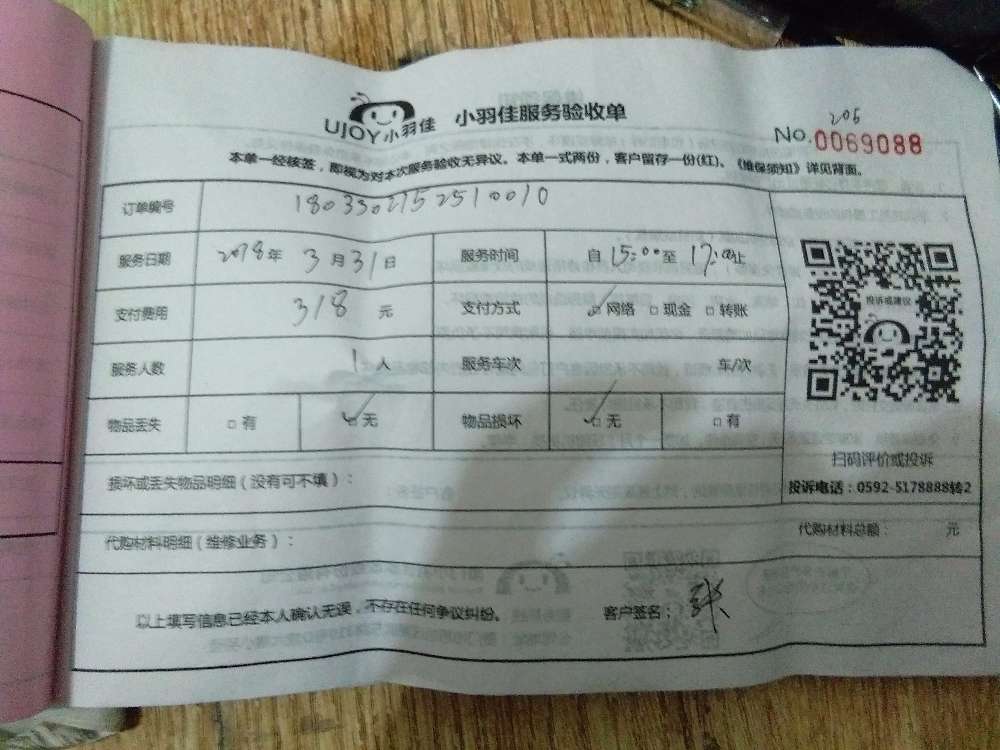 UJOY小羽佳 小羽佳服务验收单
205
No.0069088
本单一经核签，即视为对本次服务验收无异议。本单一式两份，客户留存一份(红)。《维保须知》详见背面。
订单编号 180330215251 0010
服务日期 2018年3月31日 服务时间 自15:00至17:00止
支付费用 318 元 支付方式 ☑网络 □现金 □转账
服务人数 1人 服务车次 车/次
物品丢失 □有 ☑无 物品损坏 ☑无 □有
投诉或建议
扫码评价或投诉
投诉电话：0592-5178888转2
损坏或丢失物品明细（没有可不填）：
代购材料明细（维修业务）： 代购材料总额： 元
以上填写信息已经本人确认无误，不存在任何争议纠纷。 客户签名：